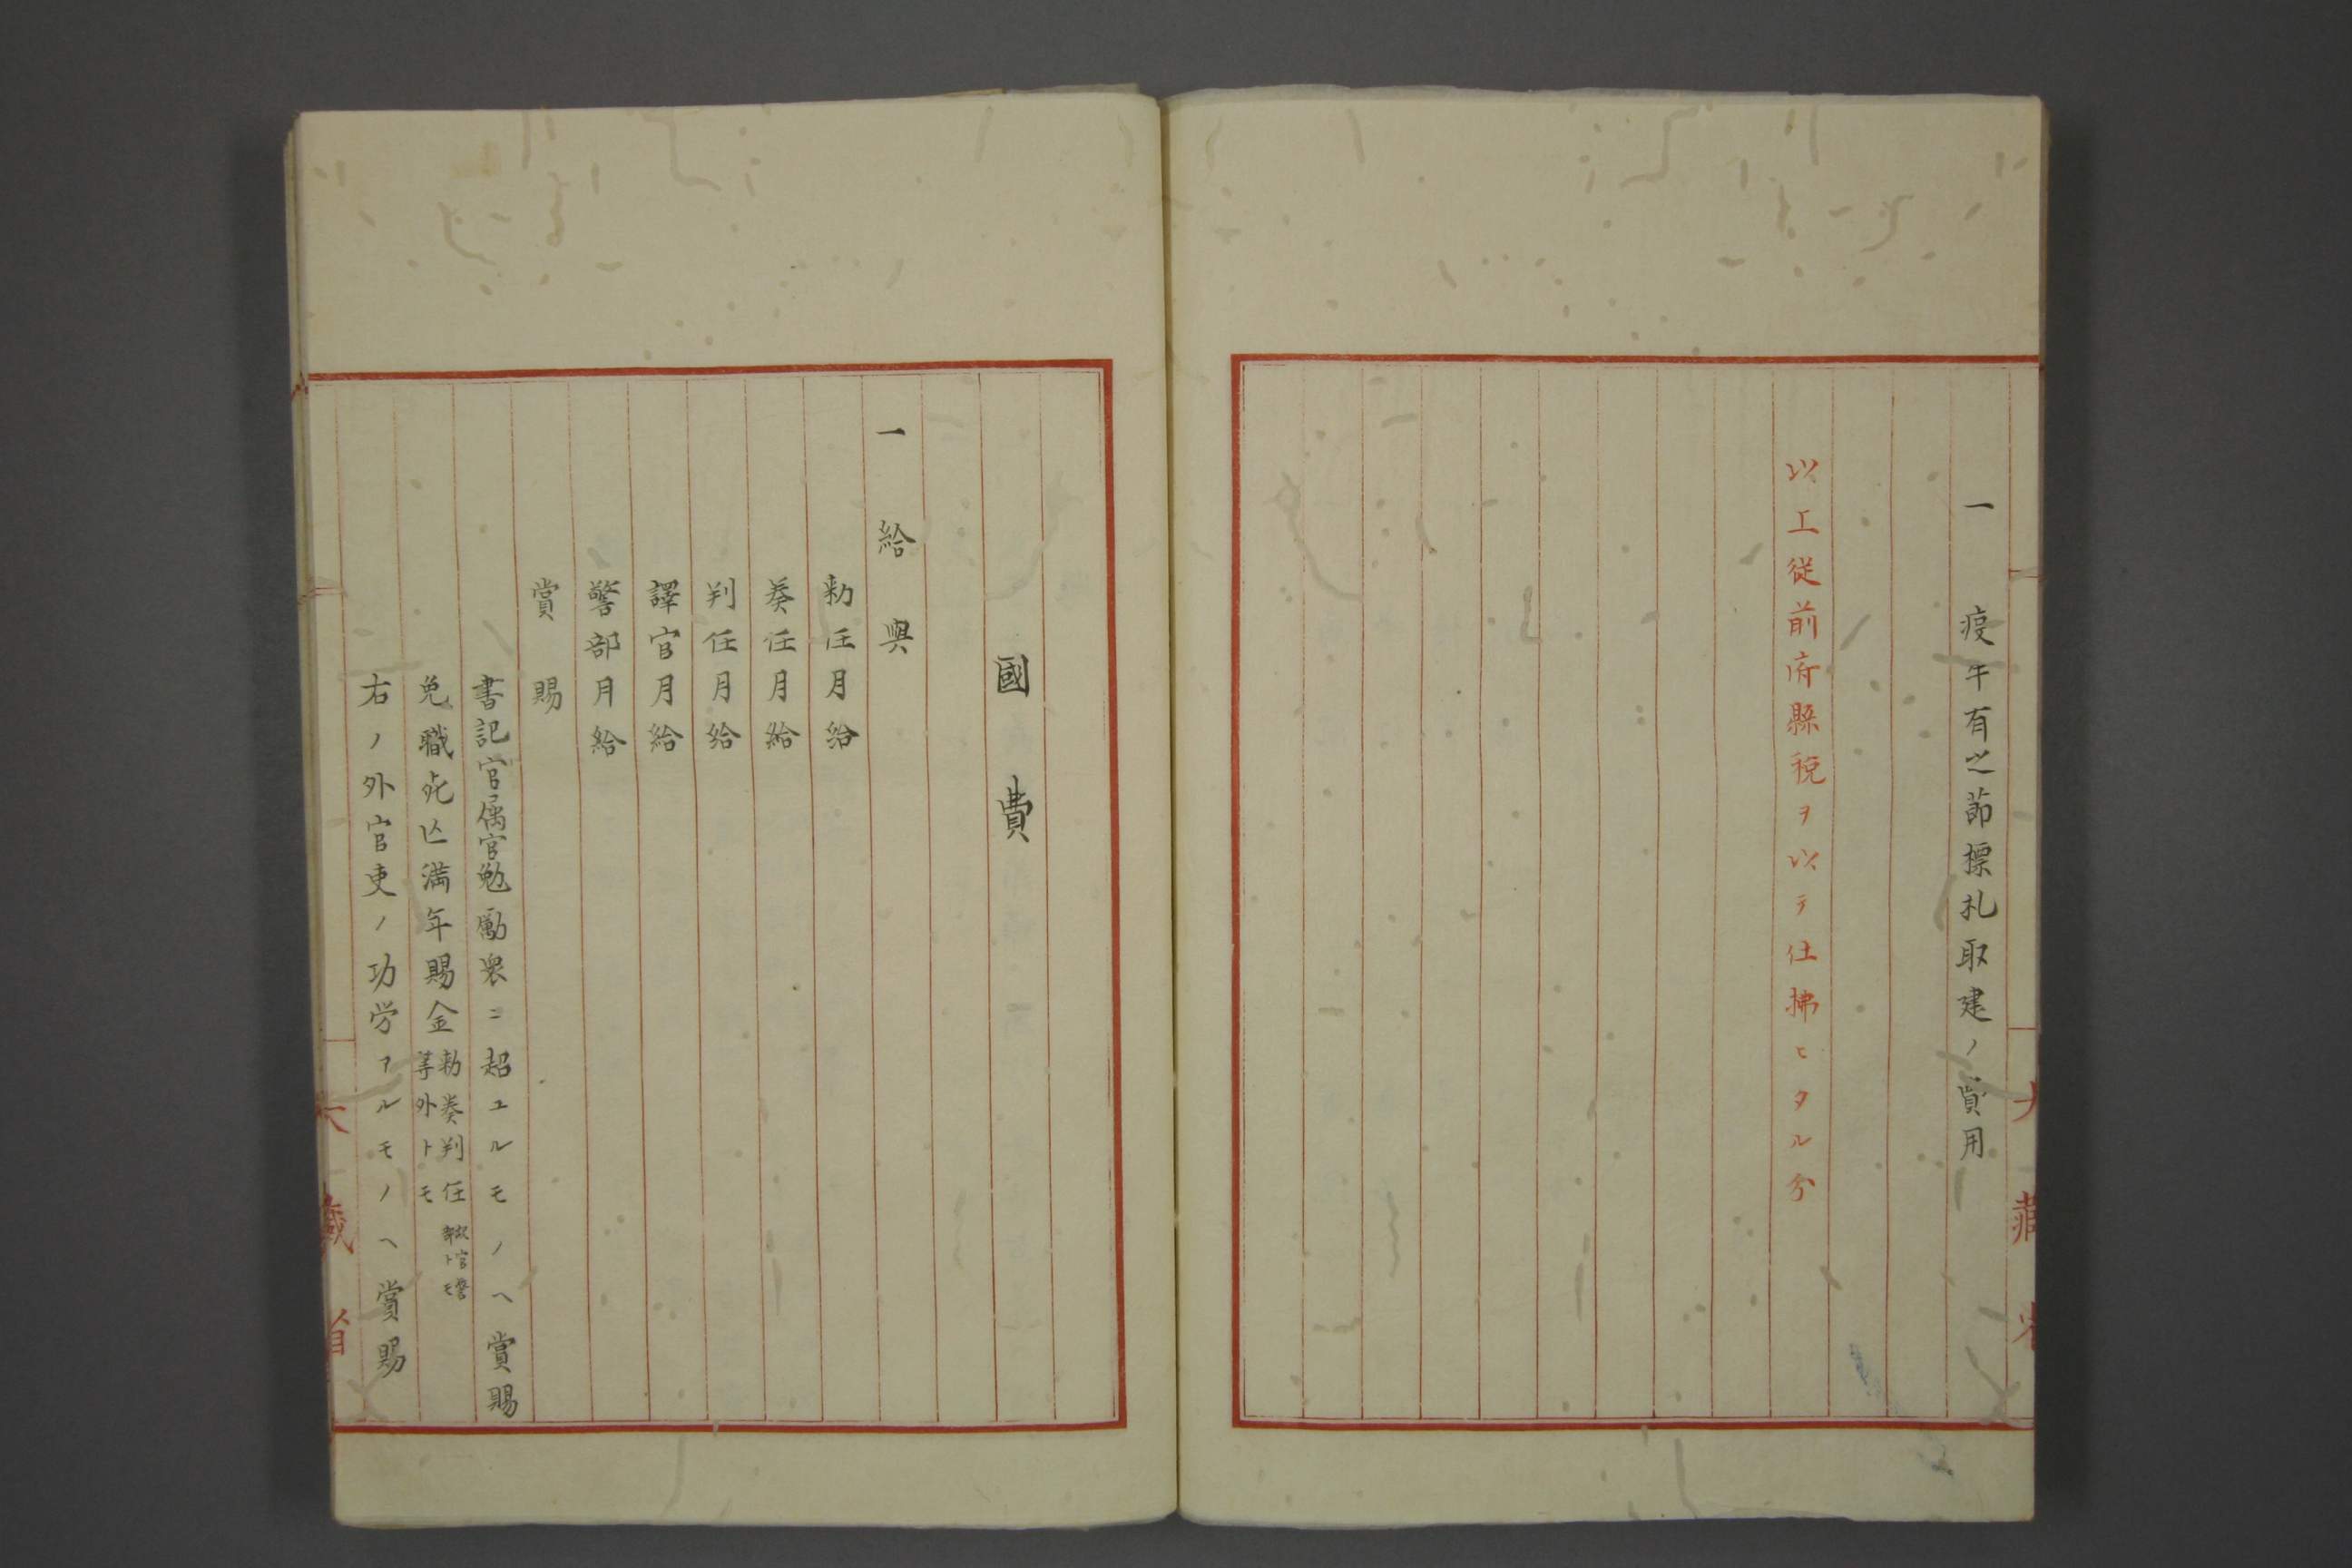 一 疫牛有之節標札取建ノ費用
以上従前府縣税ヲ以テ仕拂ヒタル分
大藏省
國費
一 給與
勅任月給
奏任月給
判任月給
譯官月給
警部月給
賞賜
書記官属官勉勵衆ニ超ユルモノヘ賞賜
免職死亡満年賜金 勅奏判任
等外トモ
右ノ外官吏ノ功労アルモノヘ賞賜
大藏省